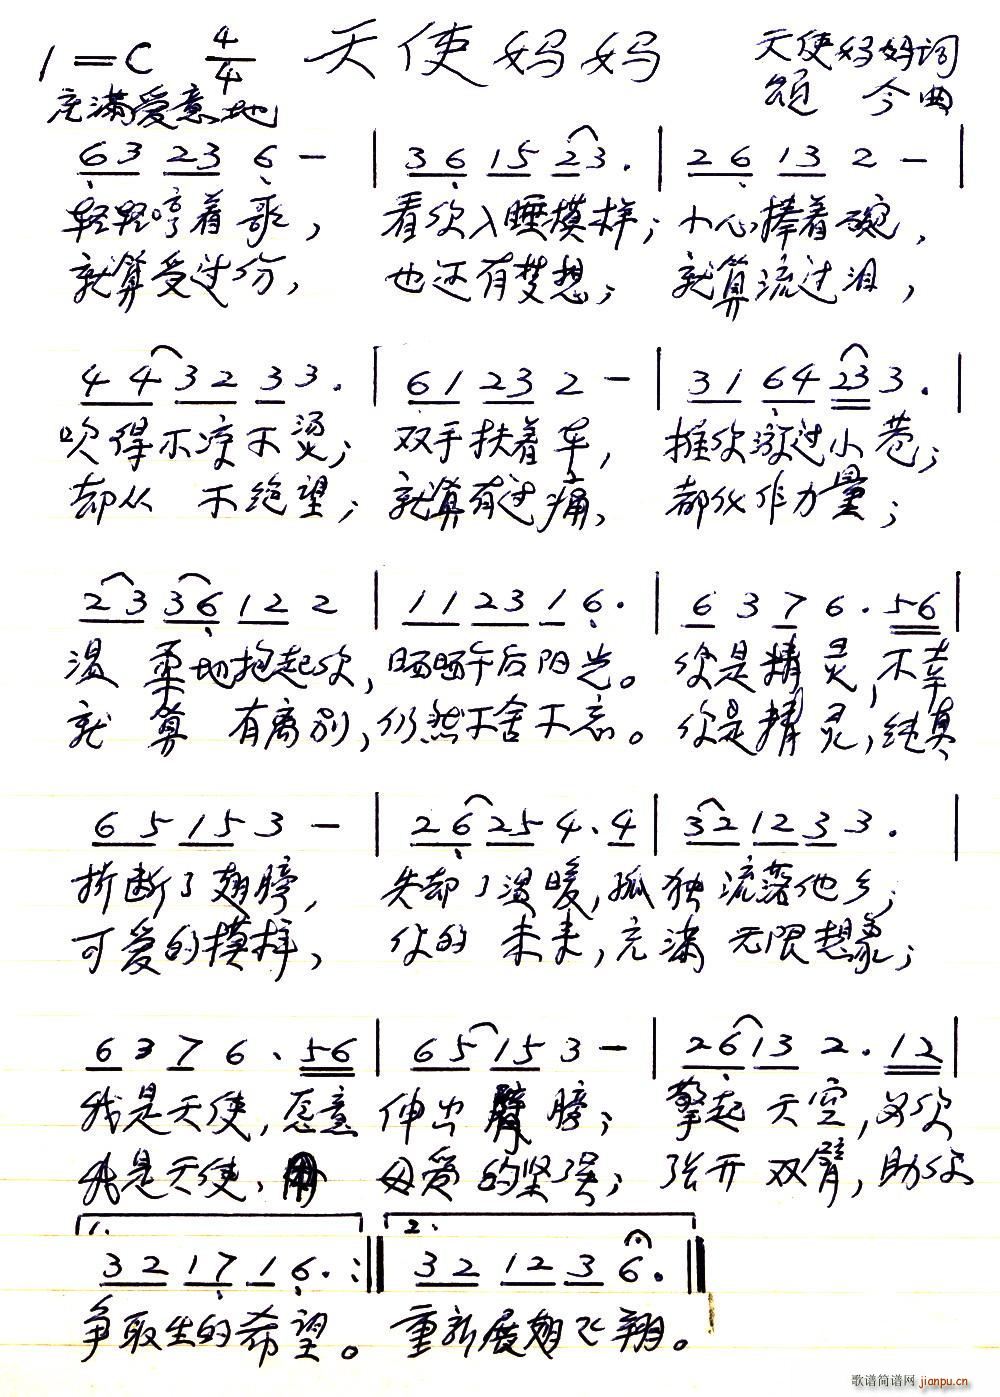 1=C 4/4 天使妈妈 天使妈妈词
充满爱意地 颂今曲
63 23 6 - | 36 15 23. | 26 13 2 - |
轻轻哼着歌, 看你入睡模样; 小心捧着碗,
就算受过伤, 也还有梦想; 就算流过泪,
44 32 33. | 61 23 2 - | 31 64 23 3. |
吹得不凉不烫; 双手扶着车, 推你漫过小巷;
却从不绝望; 就算有过痛, 都化作力量;
23 36 12 2 | 11 23 1 6. | 6 3 7 6. 56 |
温柔地抱起你, 晒晒午后阳光。你是精灵, 不幸
就算有离别, 仍然不舍不忘。你是精灵, 纯真
65 15 3 - | 26 25 4. 4 | 32 12 3 3. |
折断了翅膀, 失却了温暖, 孤独流落他乡;
可爱的模样, 你的未来, 充满无限想象;
6 3 7 6. 56 | 65 15 3 - | 26 13 2. 12 |
我是天使, 愿意伸出臂膀; 擎起天空, 为你
我是天使, 用母爱的坚强; 张开双臂, 助你
1. 2.
32 17 1 6. :‖ 32 12 3 6. ‖
争取生的希望。重新展翅飞翔。
歌谱简谱网 jianpu.cn